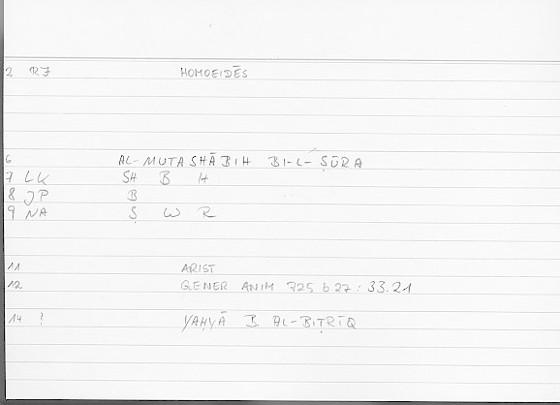 2 RF HOMOEIDĒS
6 AL-MUTASHĀBIH BI-L-ṢŪRA
7 LK SH B H
8 JP B
9 NA Ṣ W R
11 ARIST
12 GENER ANIM 725 b 27 : 33.21
14 ? YAḤYĀ B AL-BIṬRĪQ